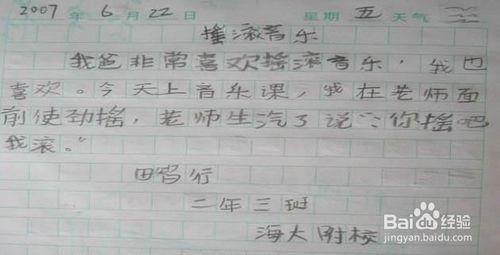 2007年6月22日 星期五天气
摇滚音乐
我爸非常喜欢摇滚音乐，我也
喜欢。今天上音乐课，我在老师面
前使劲摇，老师生汽了说：“你摇吧
我滚。”
田智行
二年三班
海大附校
Baidu经验
jingyan.baidu.com